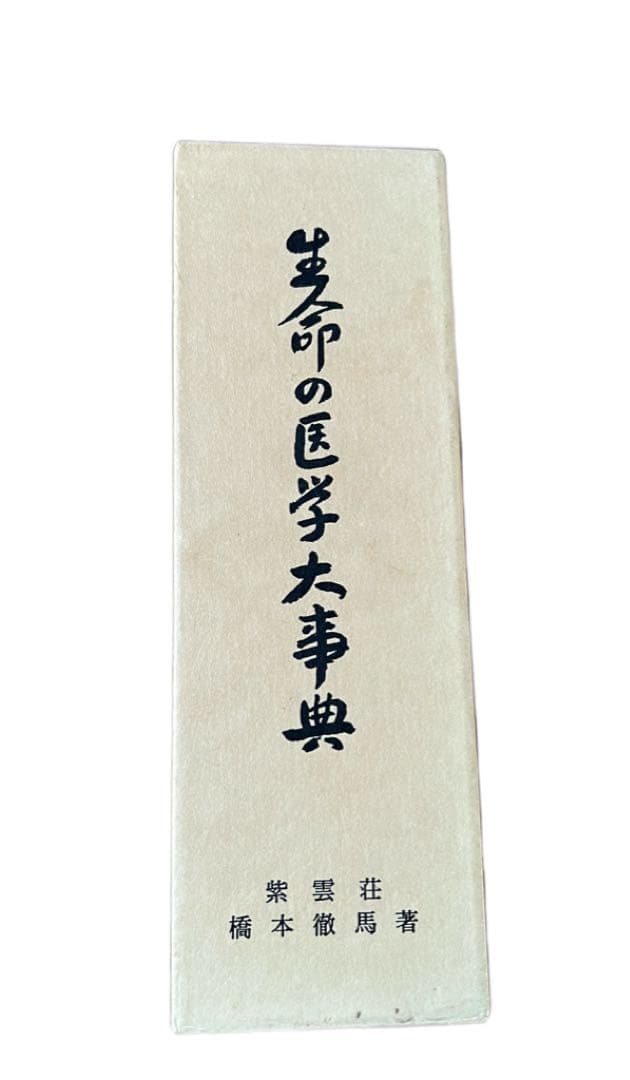 生命の医学大事典
紫雲荘
橋本徹馬著